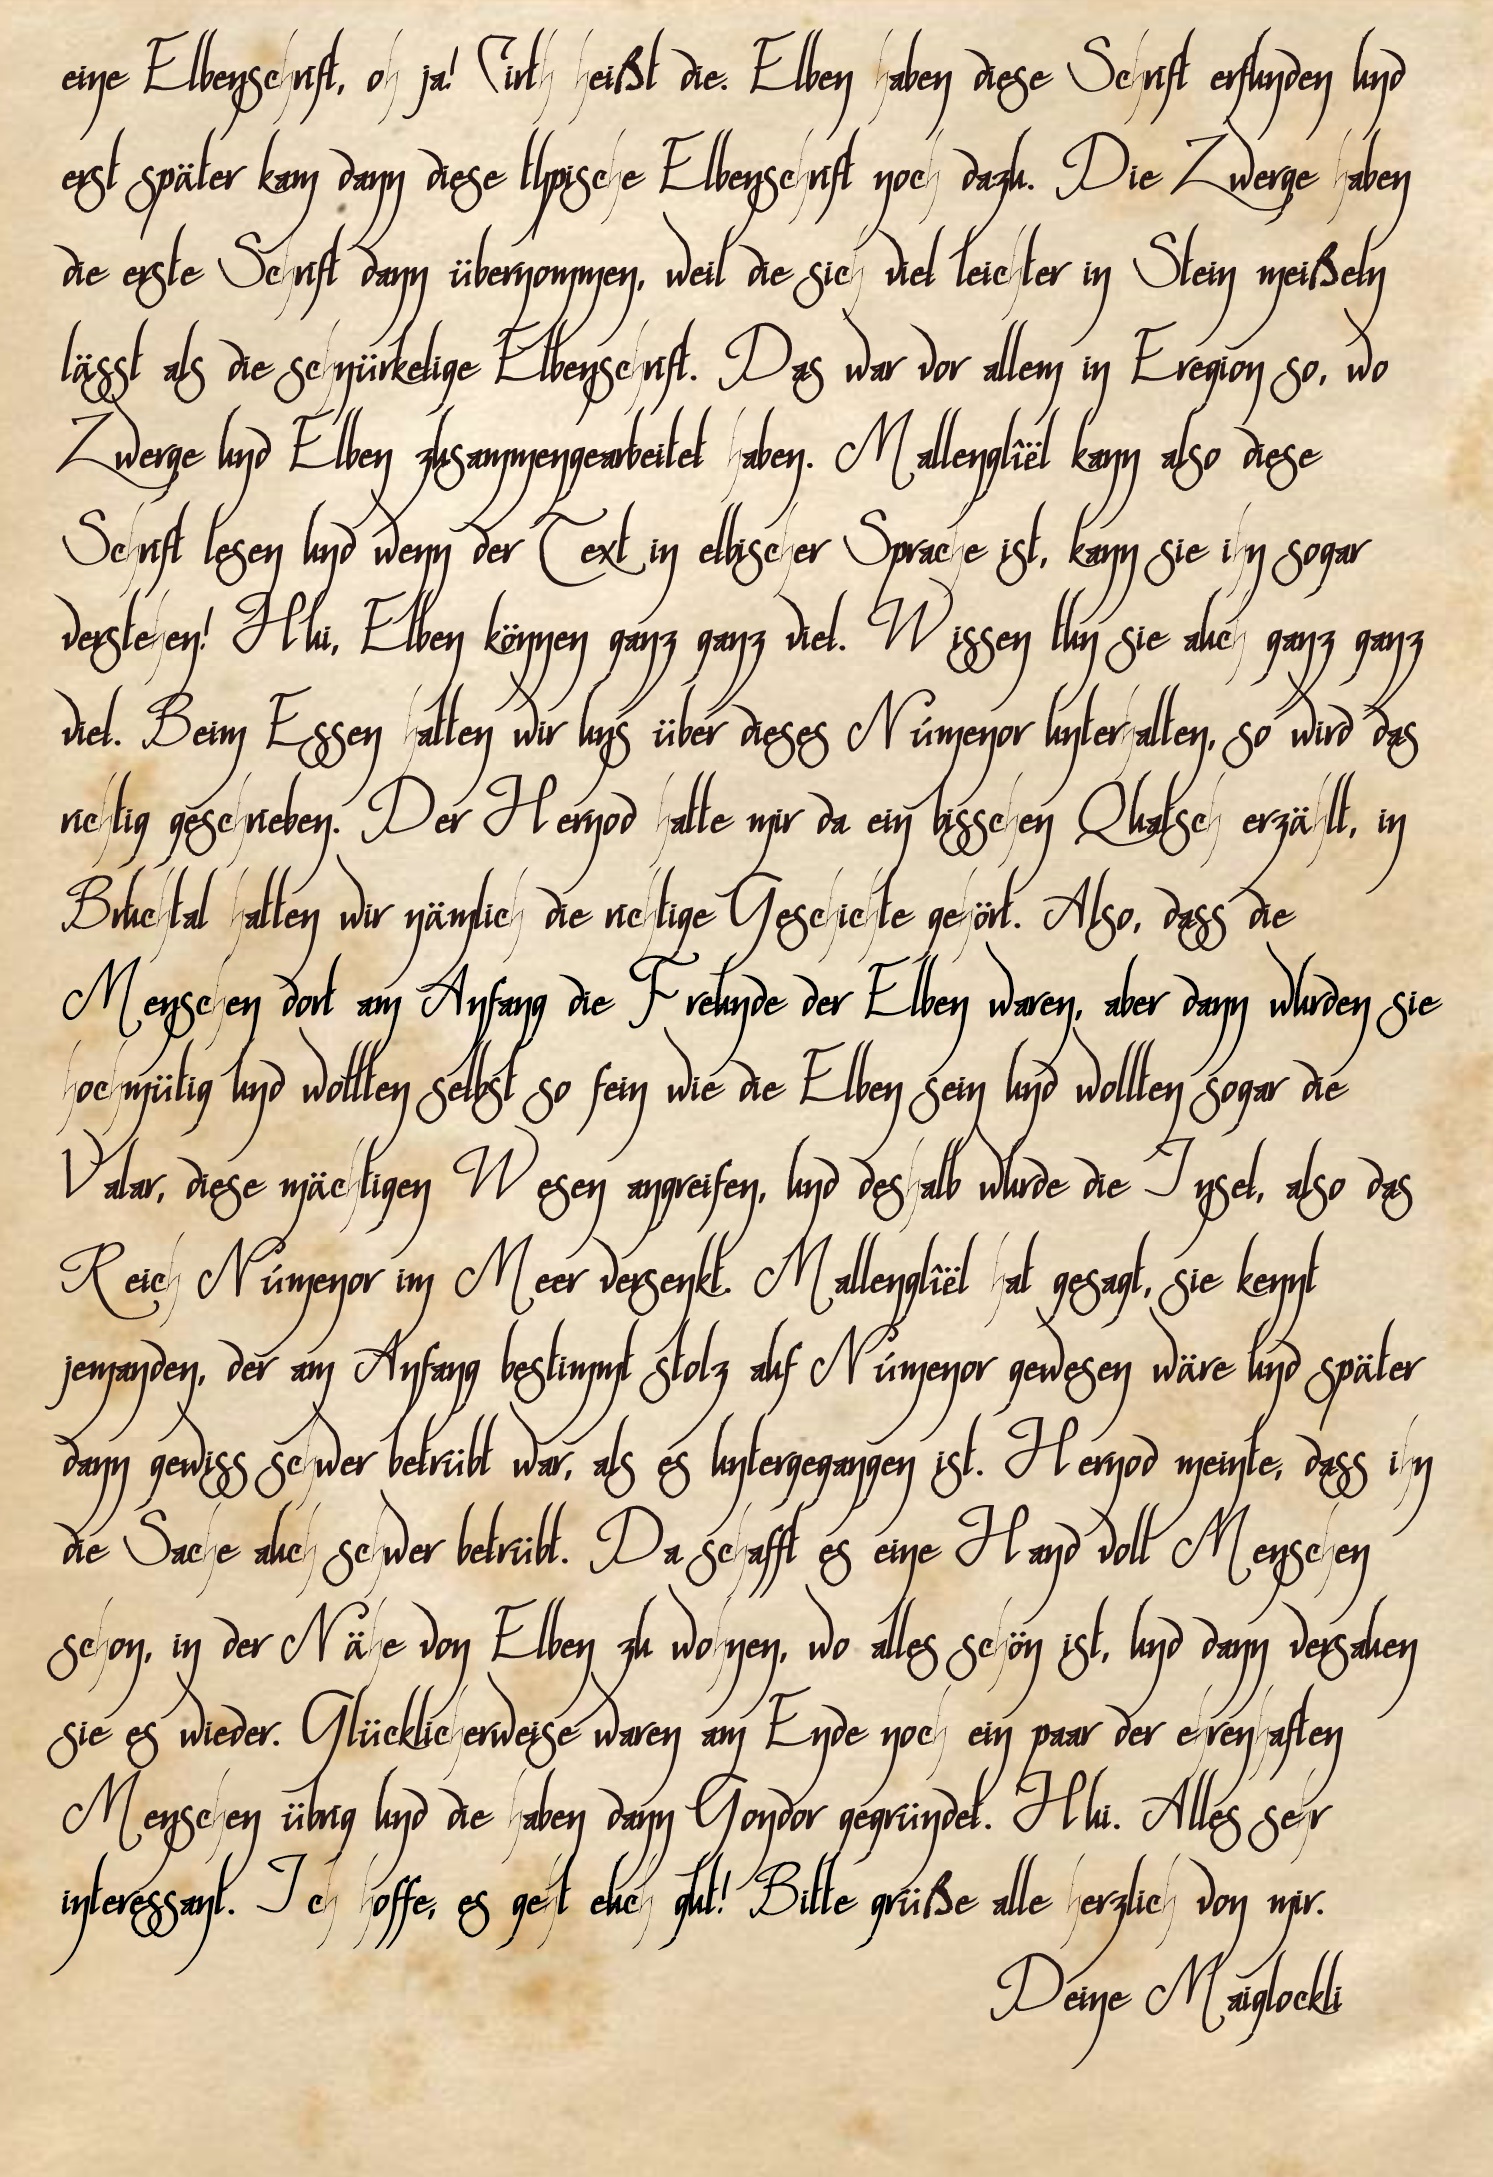 eine Elbenschrift, oh ja! Cirth heißt die. Elben haben diese Schrift erfunden und
erst später kam dann diese typische Elbenschrift noch dazu. Die Zwerge haben
die erste Schrift dann übernommen, weil die sich viel leichter in Stein meißeln
lässt als die schnürkelige Elbenschrift. Das war vor allem in Eregion so, wo
Zwerge und Elben zusammengearbeitet haben. Mallenglîël kann also diese
Schrift lesen und wenn der Text in elbischer Sprache ist, kann sie ihn sogar
verstehen! Hui, Elben können ganz ganz viel. Wissen tun sie auch ganz ganz
viel. Beim Essen hatten wir uns über dieses Númenor unterhalten, so wird das
richtig geschrieben. Der Hernod hatte mir da ein bisschen Quatsch erzählt, in
Bruchtal hatten wir nämlich die richtige Geschichte gehört. Also, dass die
Menschen dort am Anfang die Freunde der Elben waren, aber dann wurden sie
hochmütig und wollten selbst so fein wie die Elben sein und wollten sogar die
Valar, diese mächtigen Wesen angreifen, und deshalb wurde die Insel, also das
Reich Númenor im Meer versenkt. Mallenglîël hat gesagt, sie kennt
jemanden, der am Anfang bestimmt stolz auf Númenor gewesen wäre und später
dann gewiss schwer betrübt war, als es untergegangen ist. Hernod meinte, dass ihn
die Sache auch schwer betrübt. Da schafft es eine Hand voll Menschen
schon, in der Nähe von Elben zu wohnen, wo alles schön ist, und dann versauen
sie es wieder. Glücklicherweise waren am Ende noch ein paar der ehrenhaften
Menschen übrig und die haben dann Gondor gegründet. Hui. Alles sehr
interessant. Ich hoffe, es geht euch gut! Bitte grüße alle herzlich von mir.
Deine Maiglöckli